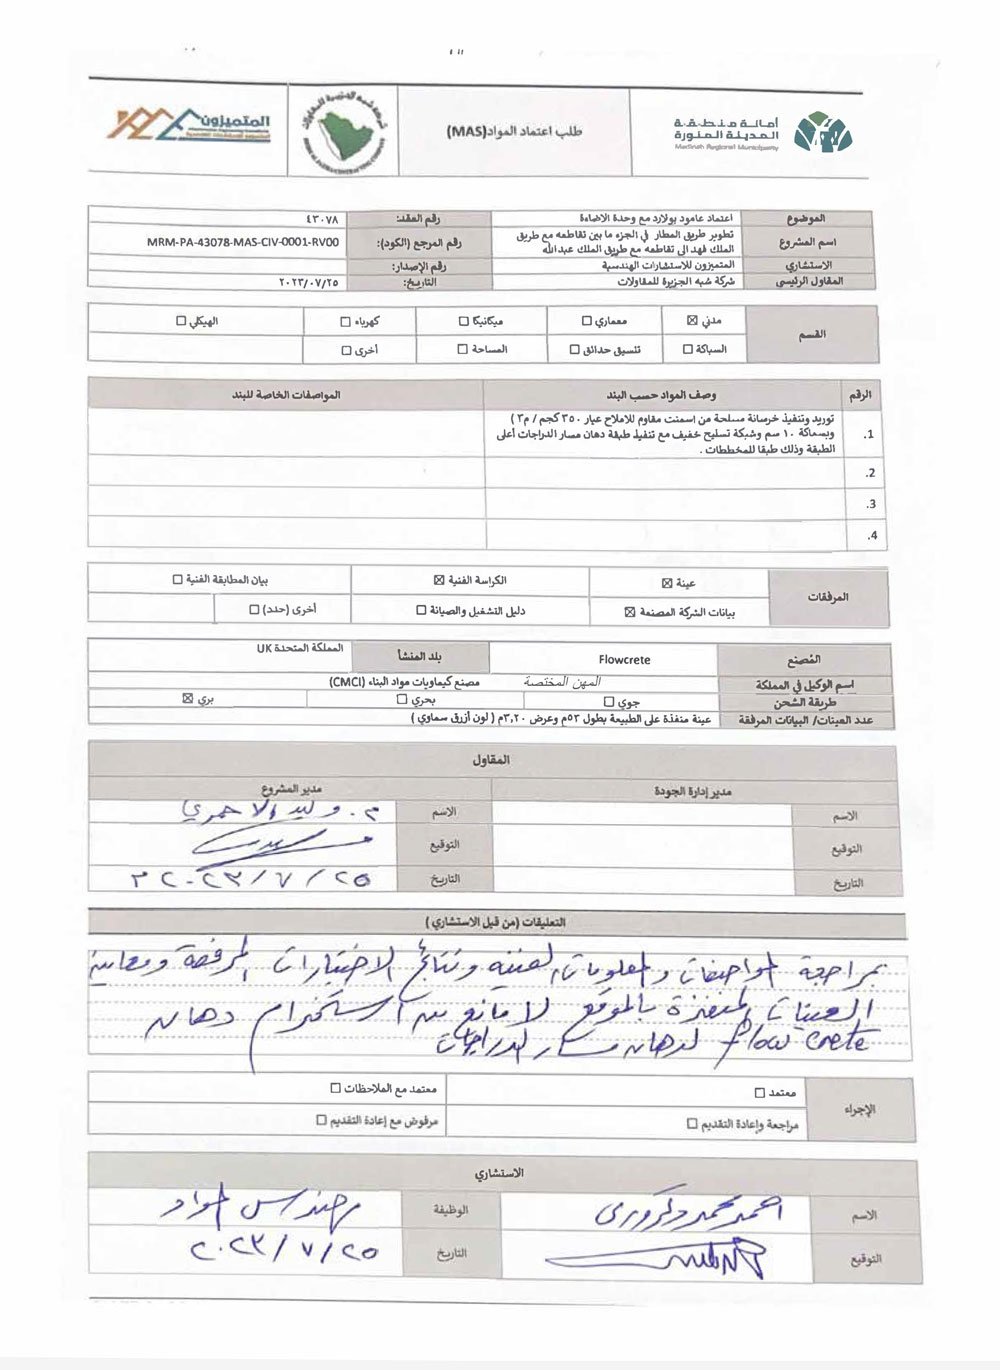 المتميزون
طلب اعتماد المواد(MAS)
أمانة منطقة
المدينة المنورة
Madinah Regional Municipality
الموضوع
اعتماد عامود بولارد مع وحدة الاضاءة
رقم العقد:
٤٣٠٧٨
اسم المشروع
تطوير طريق المطار في الجزء ما بين تقاطعه مع طريق
الملك فهد الى تقاطعه مع طريق الملك عبدالله
رقم المرجع (الكود):
MRM-PA-43078-MAS-CIV-0001-RV00
الاستشاري
المتميزون للاستشارات الهندسية
رقم الإصدار:
المقاول الرئيسي
شركة شبه الجزيرة للمقاولات
التاريخ:
٢٠٢٣/٠٧/٢٥
القسم
مدني ☒ معماري ☐ ميكانيكا ☐ كهرباء ☐ الهيكلي ☐
السباكة ☐ تنسيق حدائق ☐ المساحة ☐ أخرى ☐
الرقم وصف المواد حسب البند المواصفات الخاصة للبند
1. توريد وتنفيذ خرسانة مسلحة من اسمنت مقاوم للاملاح عيار ٣٥٠ كجم / م٣ )
وبسماكة ١٠ سم وشبكة تسليح خفيف مع تنفيذ طبقة دهان مسار الدراجات أعلى
الطبقة وذلك طبقا للمخططات .
2.
3.
4.
المرفقات
عينة ☒ الكراسة الفنية ☒ بيان المطابقة الفنية ☐
بيانات الشركة المصنعة ☒ دليل التشغيل والصيانة ☐ أخرى (حدد) ☐
المُصنع Flowcrete بلد المنشأ المملكة المتحدة UK
اسم الوكيل في المملكة المهن المختصة مصنع كيماويات مواد البناء (CMCI)
طريقة الشحن جوي ☐ بحري ☐ بري ☒
عدد العينات/ البيانات المرفقة عينة منفذة على الطبيعة بطول ٥٣م وعرض ٣,٢٠م ( لون أزرق سماوي )
المقاول
مدير إدارة الجودة مدير المشروع
الاسم الاسم م. وليد الاحمري
التوقيع التوقيع
التاريخ التاريخ ٢٠٢٣/٧/٢٥ م
التعليقات (من قبل الاستشاري )
بمراجعة المواصفات والمعلومات الفنيه ونتائج الاختبارات المرفقة ومعاينة
العينات المنفذة بالموقع لا مانع من استخدام دهان
flow crete لدهان مسار الدراجات
الإجراء
معتمد ☐ معتمد مع الملاحظات ☐
مراجعة وإعادة التقديم ☐ مرفوض مع إعادة التقديم ☐
الاستشاري
الاسم احمد محمد دكروري الوظيفة مهندس مواد
التوقيع التاريخ ٢٠٢٣/٧/٢٥